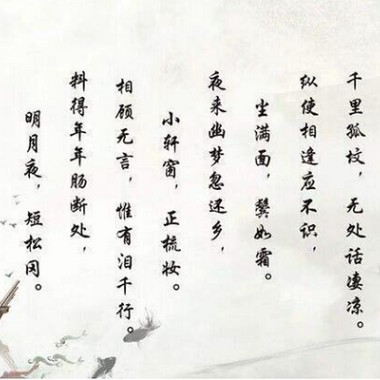 千里孤坟，无处话凄凉。
纵使相逢应不识，
尘满面，鬓如霜。
夜来幽梦忽还乡，
小轩窗，正梳妆。
相顾无言，惟有泪千行。
料得年年肠断处，
明月夜，短松冈。